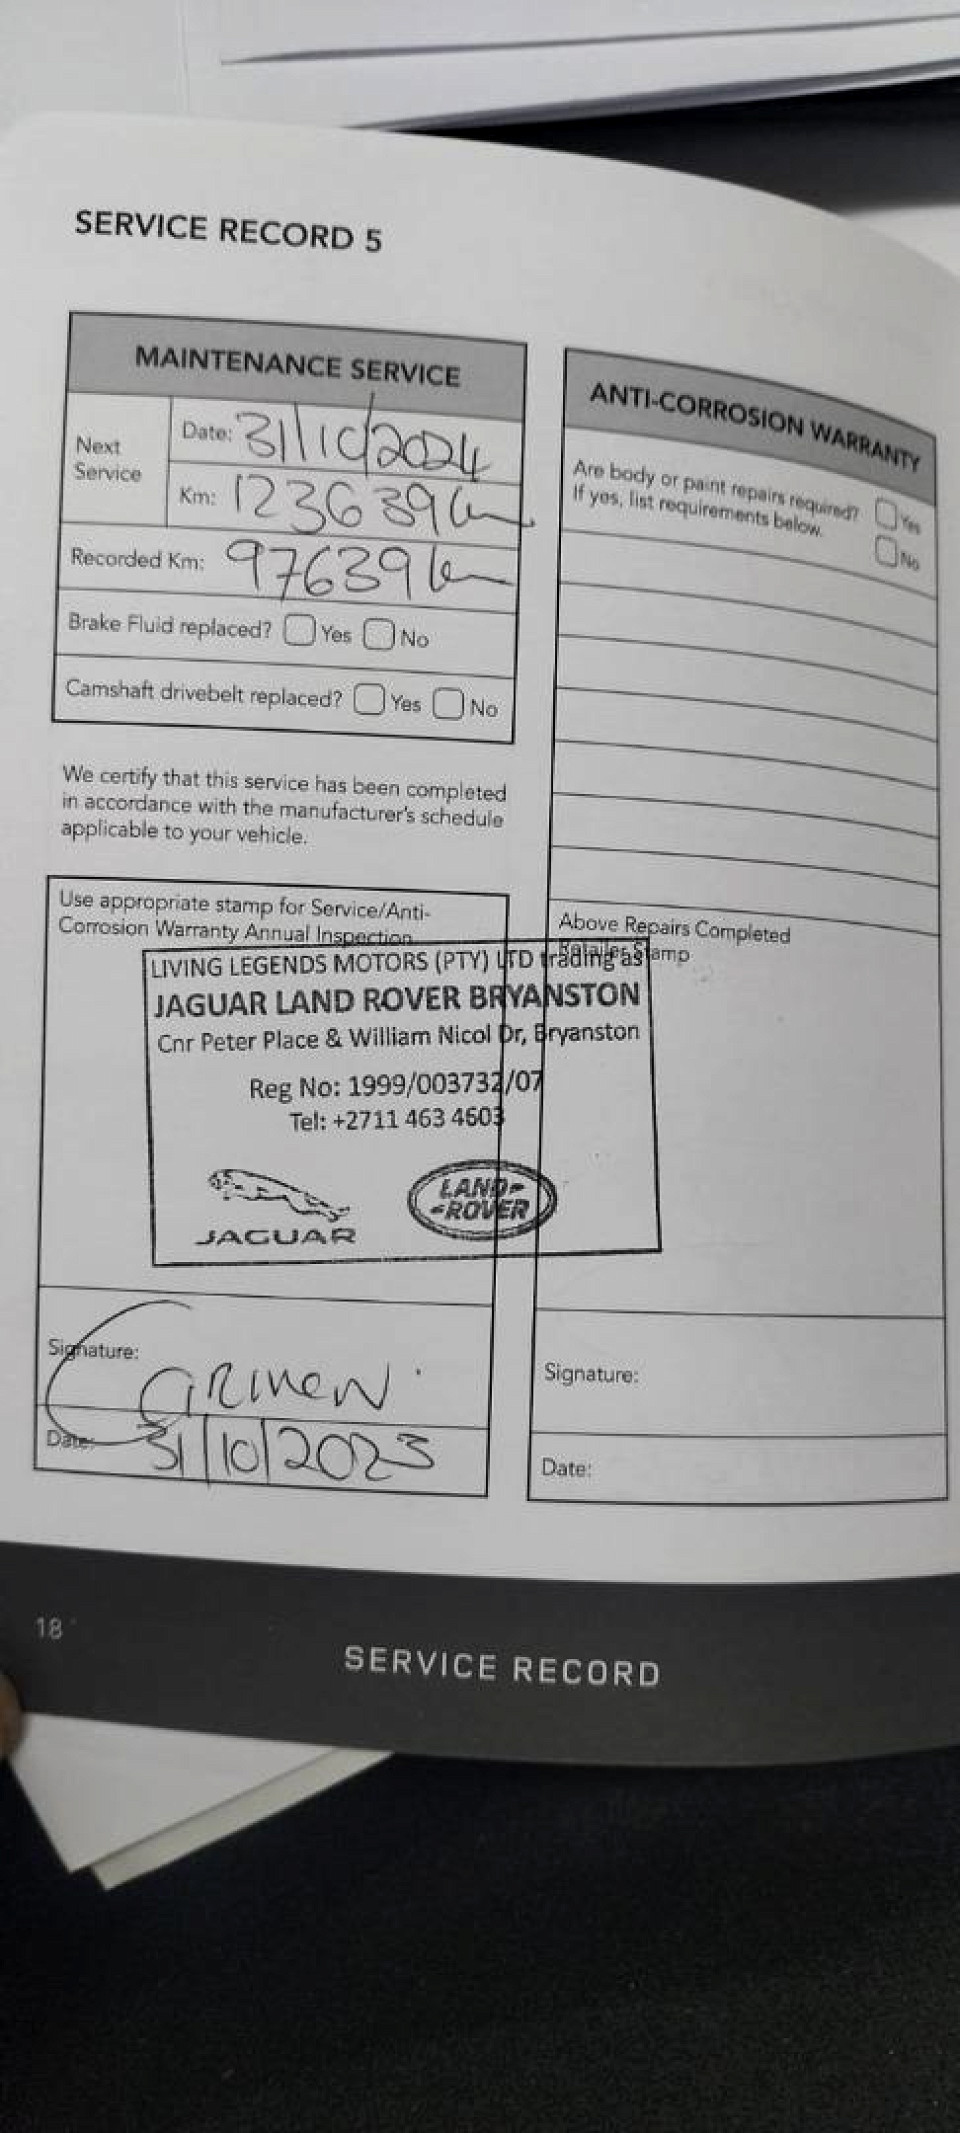 SERVICE RECORD 5
MAINTENANCE SERVICE
Next Service
Date: 31/10/2024
Km: 123639km
Recorded Km: 97639km
Brake Fluid replaced? Yes No
Camshaft drivebelt replaced? Yes No
We certify that this service has been completed
in accordance with the manufacturer's schedule
applicable to your vehicle.
Use appropriate stamp for Service/Anti-
Corrosion Warranty Annual Inspection
LIVING LEGENDS MOTORS (PTY) LTD trading as
JAGUAR LAND ROVER BRYANSTON
Cnr Peter Place & William Nicol Dr, Bryanston
Reg No: 1999/003732/07
Tel: +2711 463 4603
JAGUAR
LAND-
-ROVER
Signature: Carmen
Date: 31/10/2023
ANTI-CORROSION WARRANTY
Are body or paint repairs required? Yes
If yes, list requirements below. No
Above Repairs Completed
Retailer Stamp
Signature:
Date:
18
SERVICE RECORD